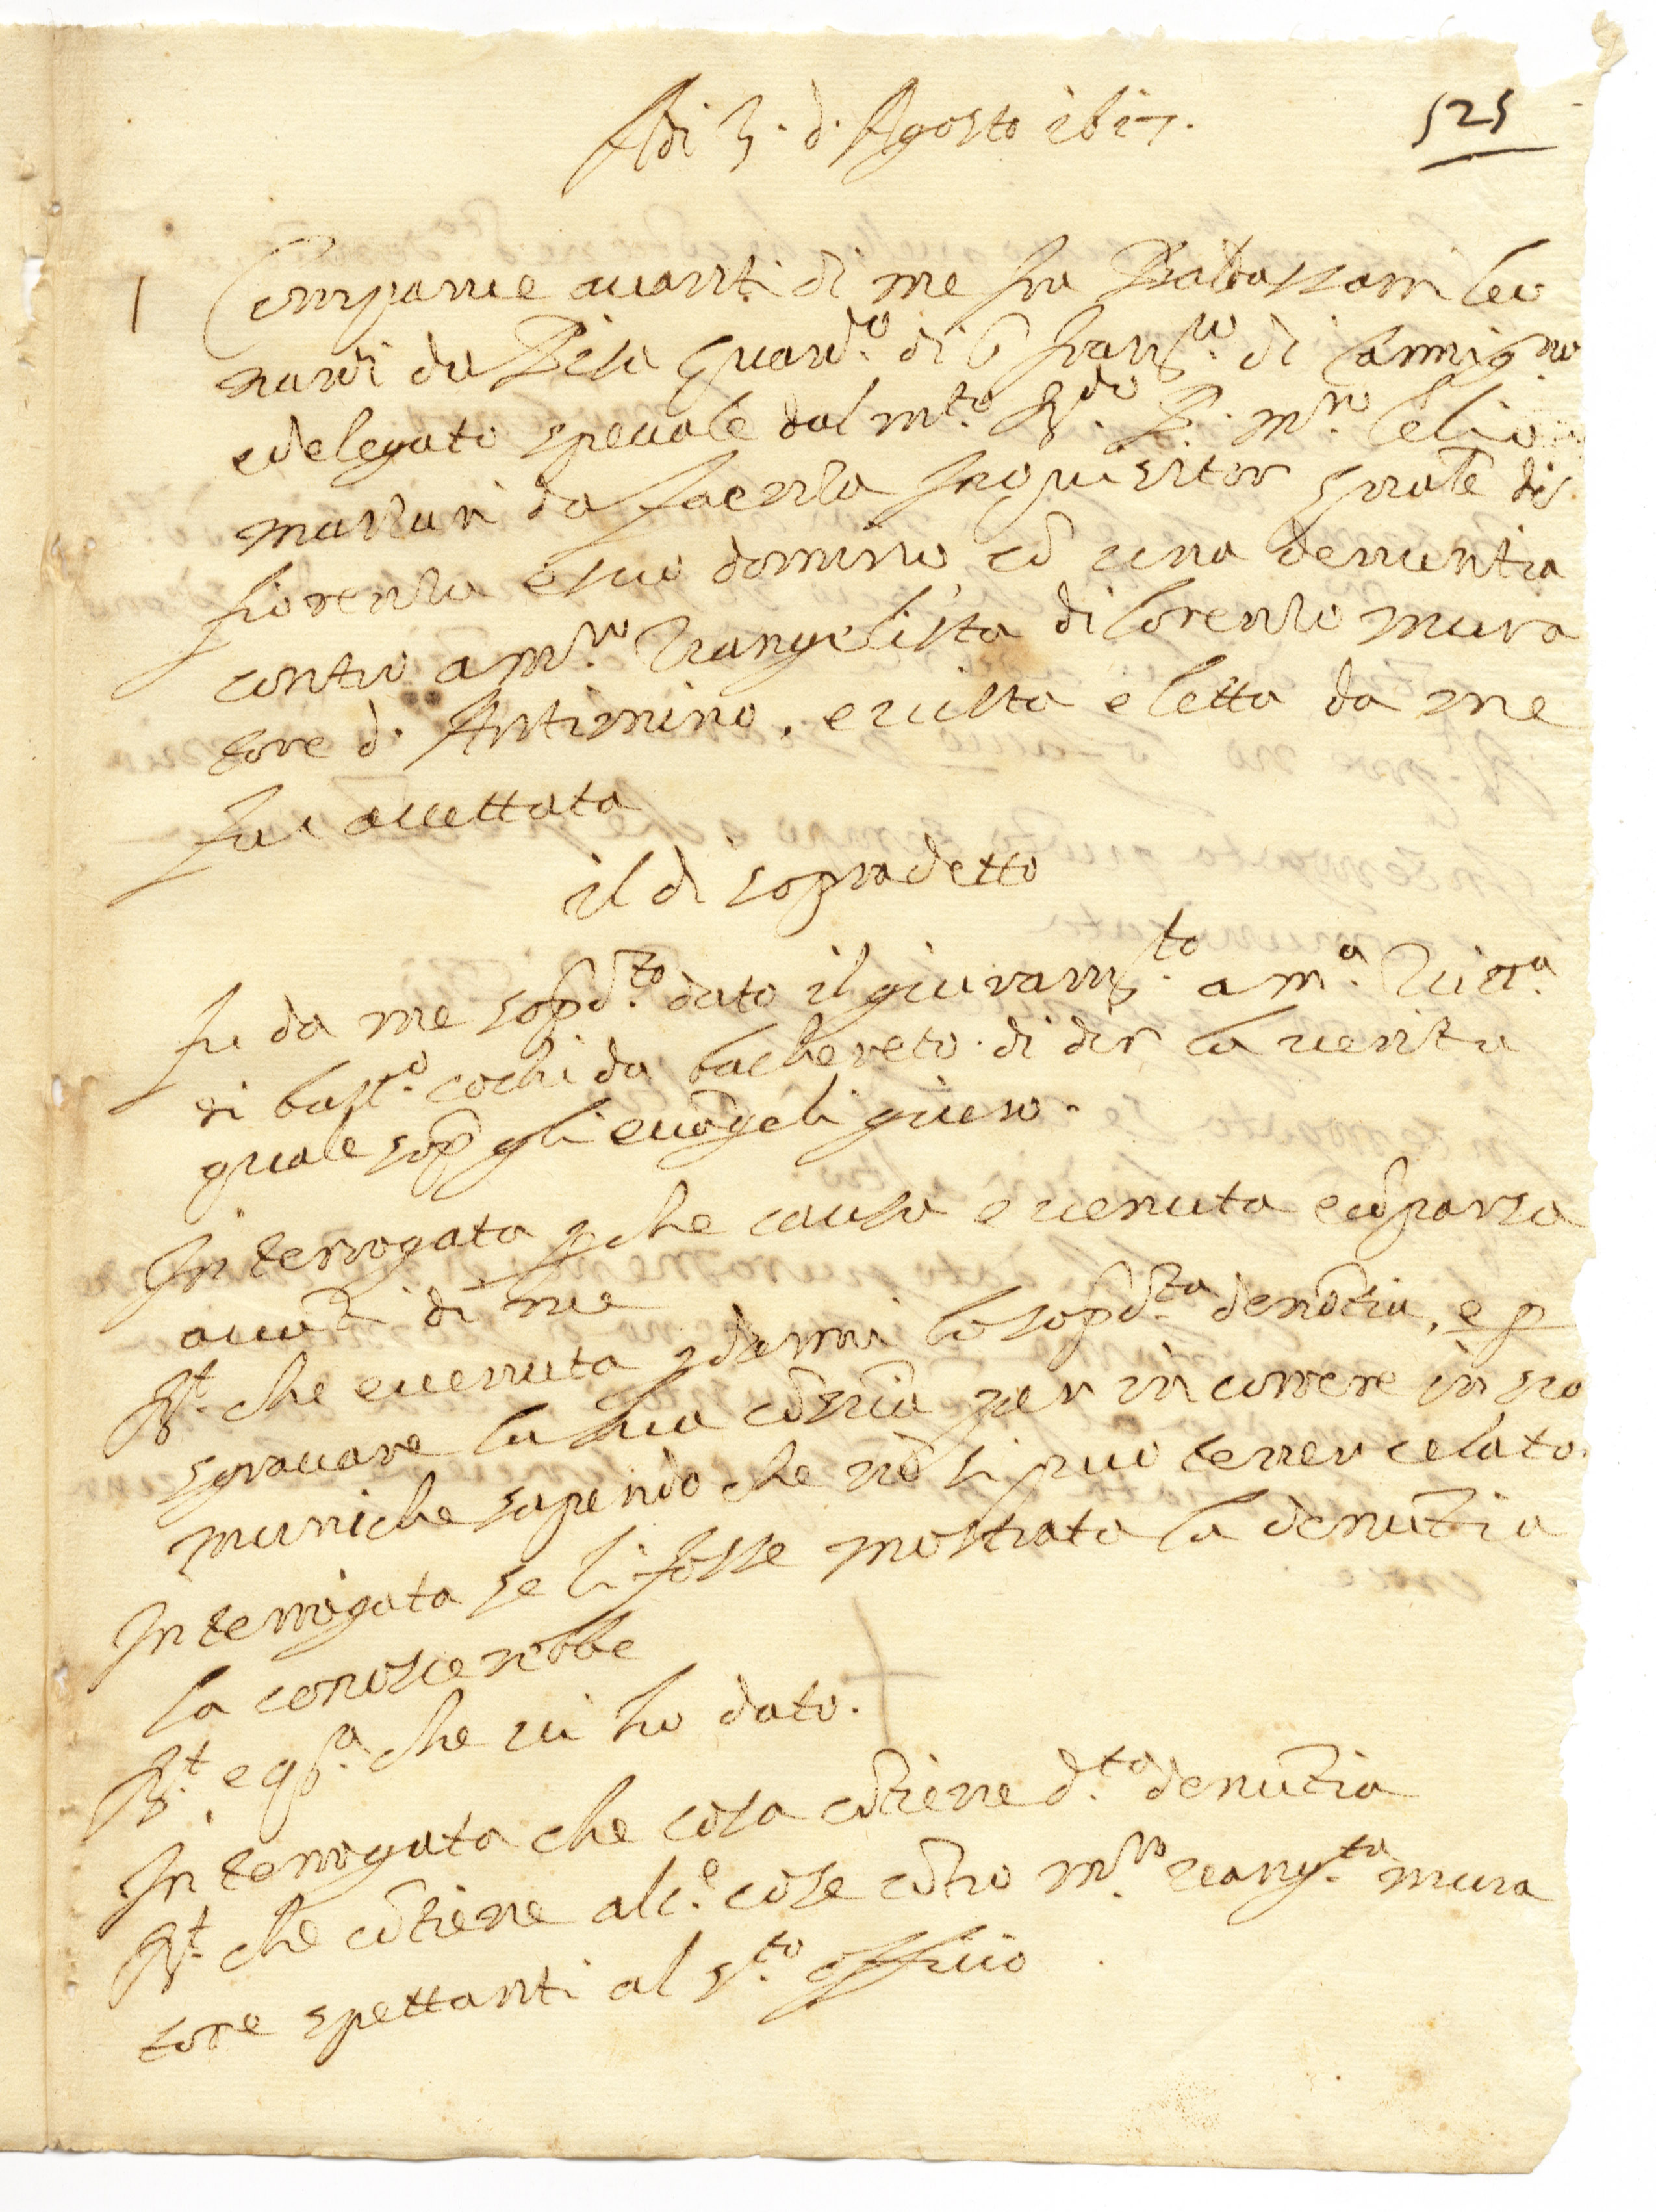 Adi 3. d. Agosto 1627.
525
1 Comparue auanti di me fra Baldassarri leo
nardi da Pisa Guard.o di S fran.co di Carmig.no
e delegato speciale dal m.to R.do P. m.ro Clelio
marzari da faenza Inquisitor gnale di
fiorenza e suo dominio cõ una denuntia
contro a m.ro Vangelista di lorenzo mura
tore d. Artimino, e uista e letta da me
fu accettata
il di sopradetto
fu da me sopd.to dato il giuram.to a m.a Vitt.a
di bast.o cochi da bachereto di dir la uerita
quale sop gli euãgeli giuro.
Interrogata p che causa e uenuta e cõparsa
auãti di me
R.t che e uenuta p darmi la sopd.ta denũtia, e p
sgrauare la sua cõsciã per in correre in sco
muniche sapendo che nõ si puo tener celato.
Interrogata se li fosse mostrata la denũtia
la conoscierebbe
R.t e qs.a che ui ho dato.
Interrogata che cosa cõtiene d.ta denũtia
R.t che cõtiene alc.e cose cõtro m.ro uang.ta mura
tore spettanti al s.to offitio